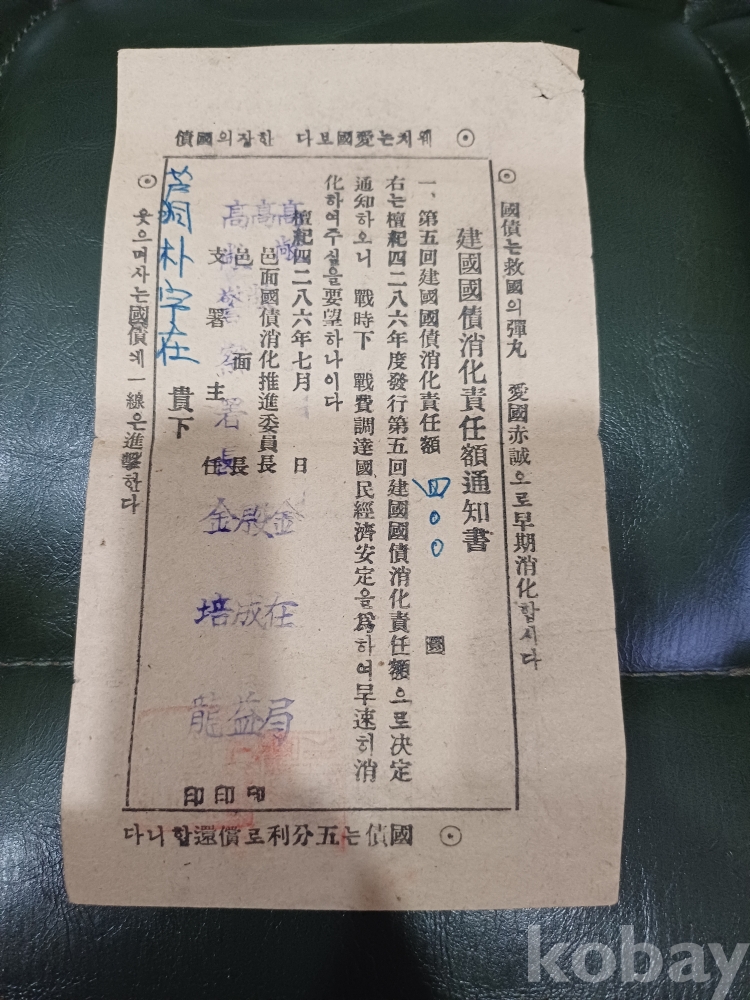 ⊙ 웨치는愛國보다 한장의國債
⊙ 國債는救國의彈丸 愛國赤誠으로早期消化합시다
建國國債消化責任額通知書
一、第五回建國國債消化責任額 四〇〇 圜
右는檀紀四二八六年度發行第五回建國國債消化責任額으로決定
通知하오니 戰時下 戰費調達國民經濟安定을爲하여早速히消
化하여주심을要望하나이다
檀紀四二八六年七月 日
邑面國債消化推進委員長 金在局 印
邑面長 殷成益 印
支署主任 金培龍 印
高敞
高敞
高敞警察署長
芦洞 朴字在 貴下
⊙ 웃으며사는國債에一線은進擊한다
⊙ 國債는五分利로償還합니다
kobay